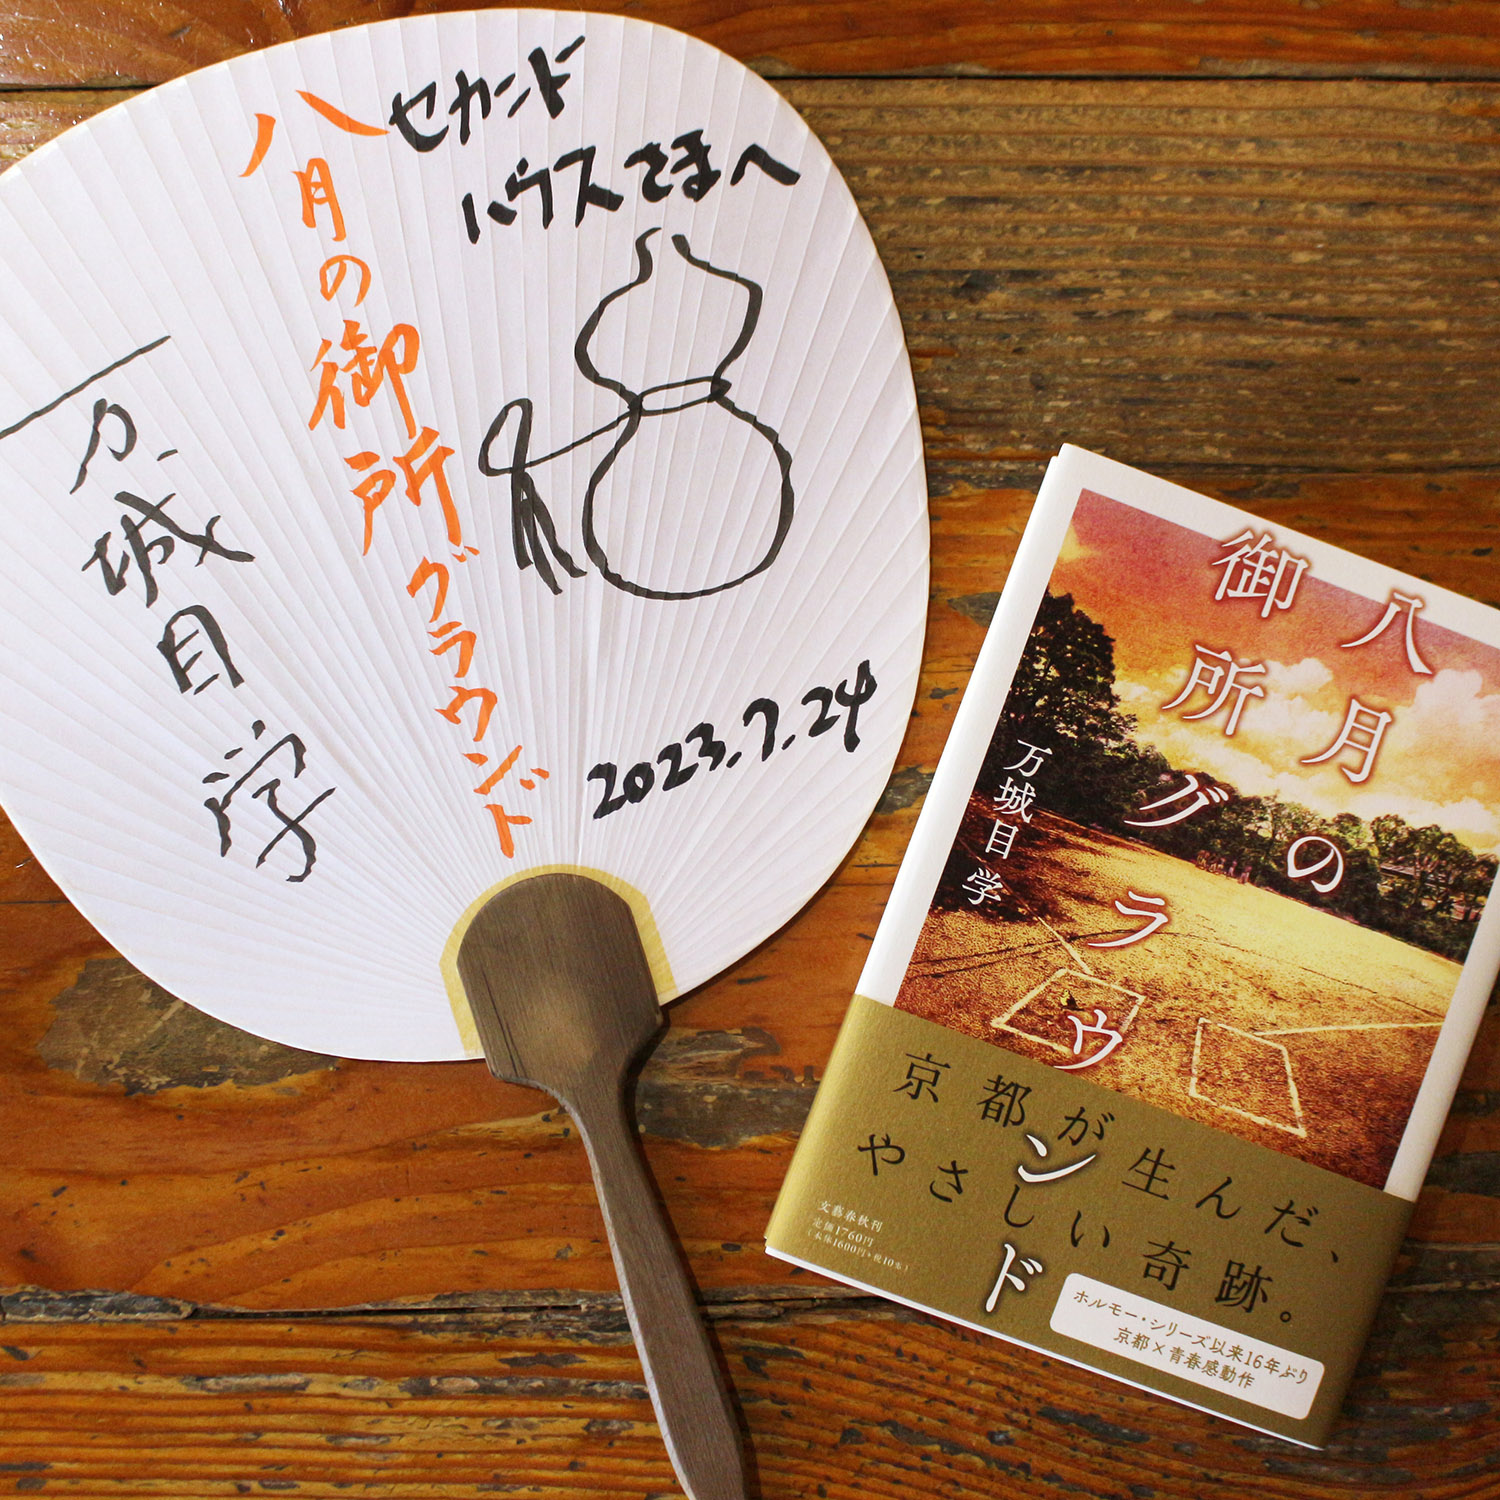 セカンド
ハウスさまへ
八月の御所グラウンド
万城目学
2023.7.24
八月の
御所グラウンド
万城目学
京都が生んだ、
やさしい奇跡。
文藝春秋刊
定価1760円
(本体1600円+税10%)
ホルモー・シリーズ以来16年ぶり
京都×青春感動作